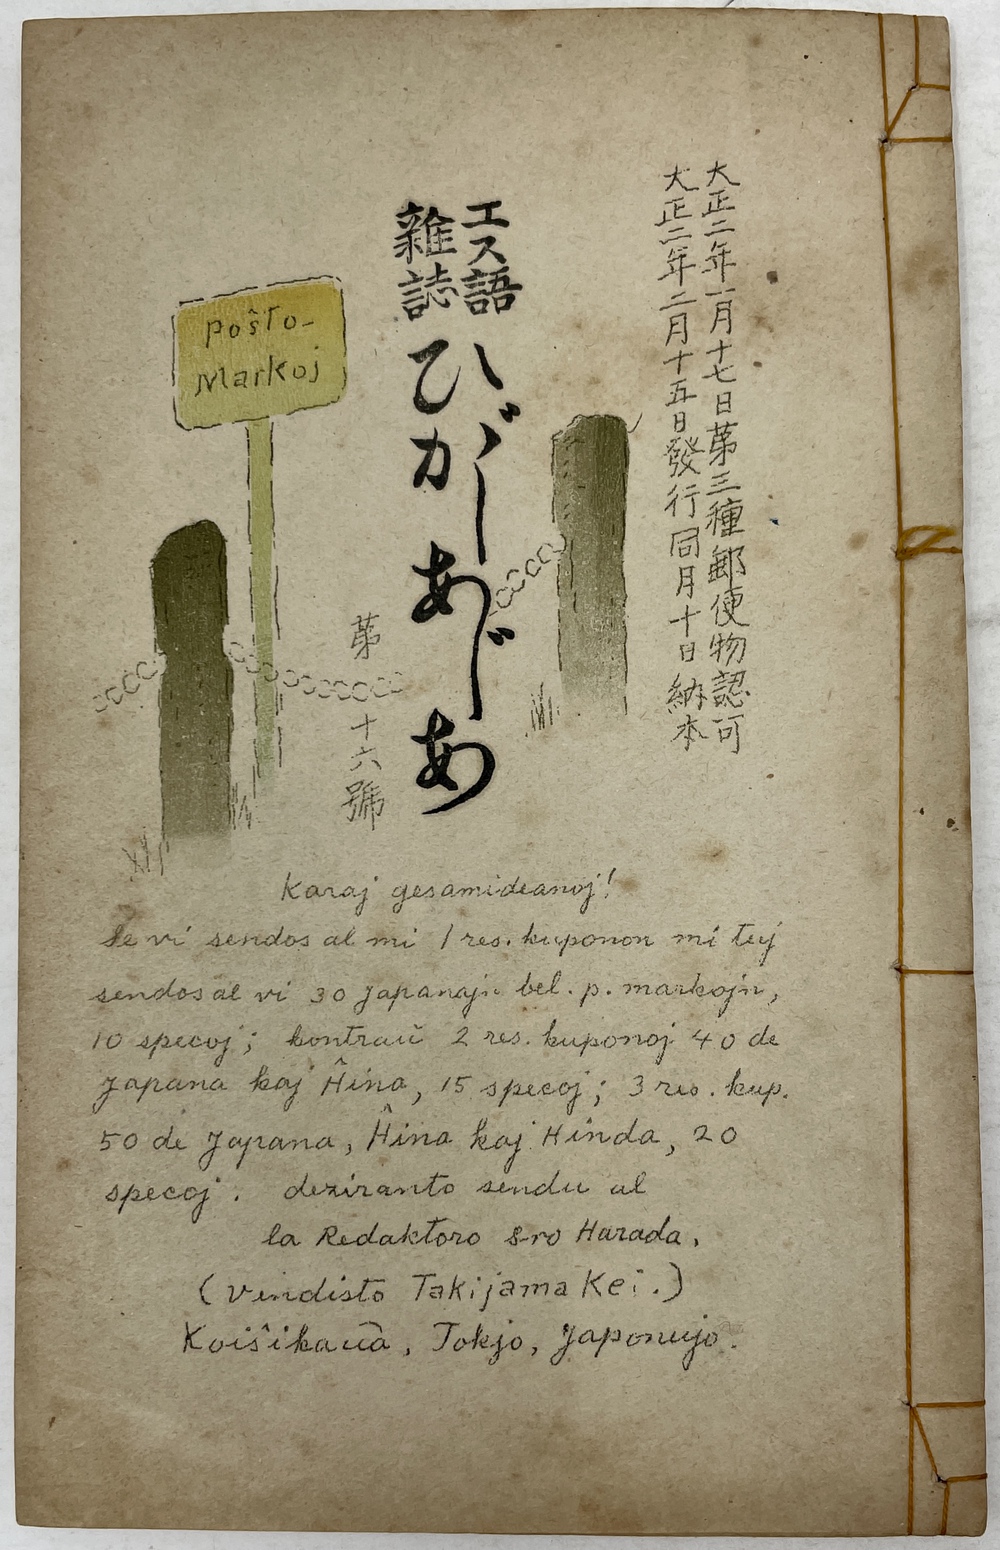 大正二年一月十七日第三種郵便物認可
大正二年二月十五日發行同月十日納本
エス語
雜誌
ひがしあじあ
第十六號
Poŝto-
Markoj
Karaj gesamideanoj!
Se vi sendos al mi 1 res. kuponon mi tuj
sendos al vi 30 Japanajn bel. p. markojn,
10 specoj; kontraŭ 2 res. kuponoj 40 de
Japana kaj Ĥina, 15 specoj; 3 res. kup.
50 de Japana, Ĥina kaj Hinda, 20
specoj. deziranto sendu al
la Redaktoro S-ro Harada,
(vendisto Takijama Kei.)
Koiŝikaŭa, Tokjo, Japonujo.